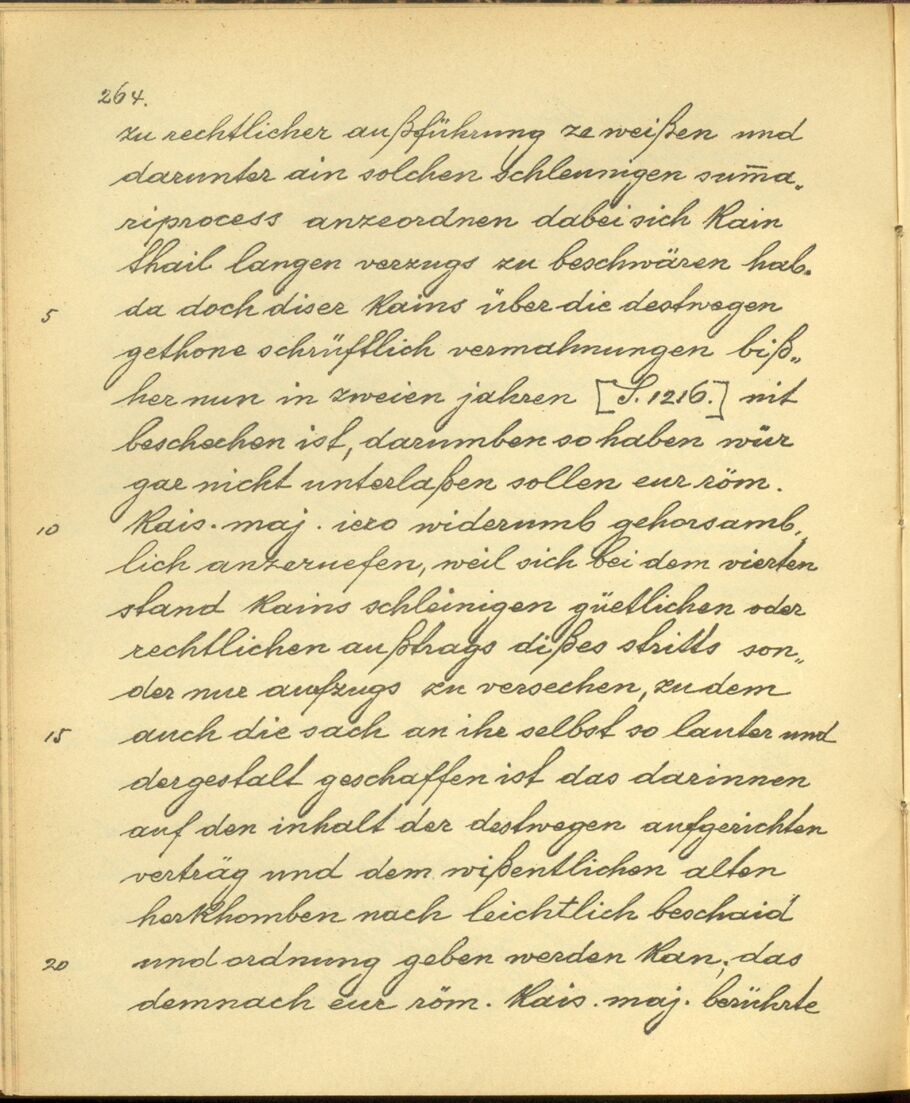 264.
zu rechtlicher außführung ze weißen und
darunter ain solchen schleunigen sum̄a„
riprocess anzeordnen dabei sich kain
thail langen verzugs zu beschwären hab.
5 da doch diser kains über die destwegen
gethone schrüftlich vermahnungen biß„
her nun in zweien jahren [S. 1216.] nit
beschechen ist, darumben so haben wür
gar nicht unterlaßen sollen eur röm.
10 kais. maj. iezo widerumb gehorsamb„
lich anzeruefen, weil sich bei dem vierten
stand kains schleinigen güetlichen oder
rechtlichen außtrags dißes stritts son„
der nur aufzugs zu versechen, zu dem
15 auch die sach an ihr selbst so lauter und
dergestalt geschaffen ist das darinnen
auf den inhalt der destwegen aufgerichten
verträg und dem wißentlichen alten
herkhomben nach leichtlich beschaid
20 und ordnung geben werden kan; das
demnach eur röm. kais. maj. berührte